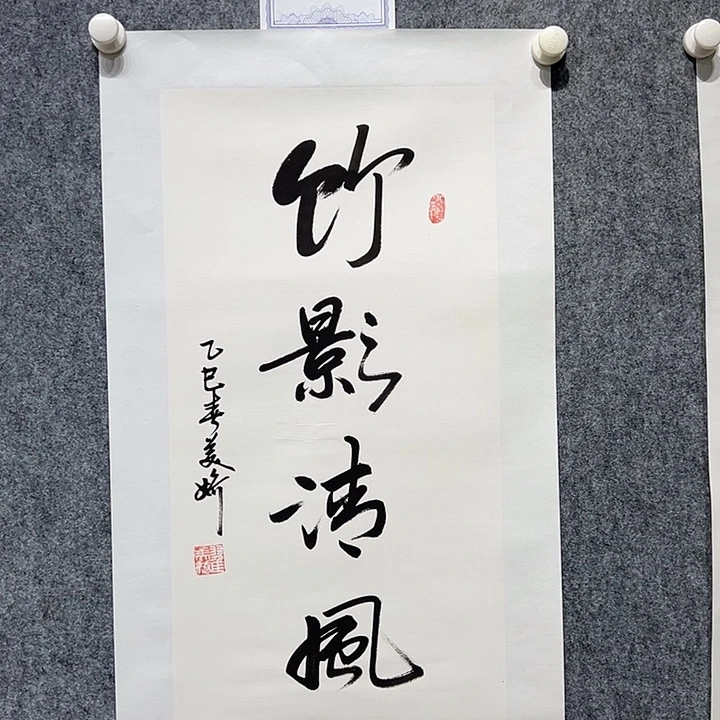 竹影清風
乙巳春美娇